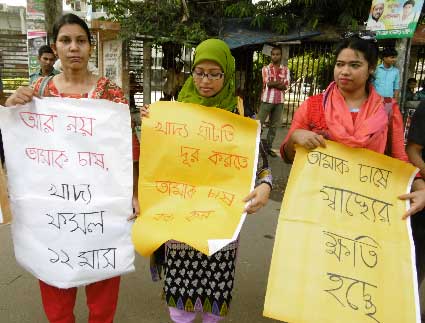 আর নয়
তামাক চাষ,
খাদ্য
ফসল
১২ মাস
খাদ্য ঘাটতি
দূর করতে
তামাক চাষ
বন্ধ করুন
তামাক চাষে
স্বাস্থ্যের
ক্ষতি
হচ্ছে